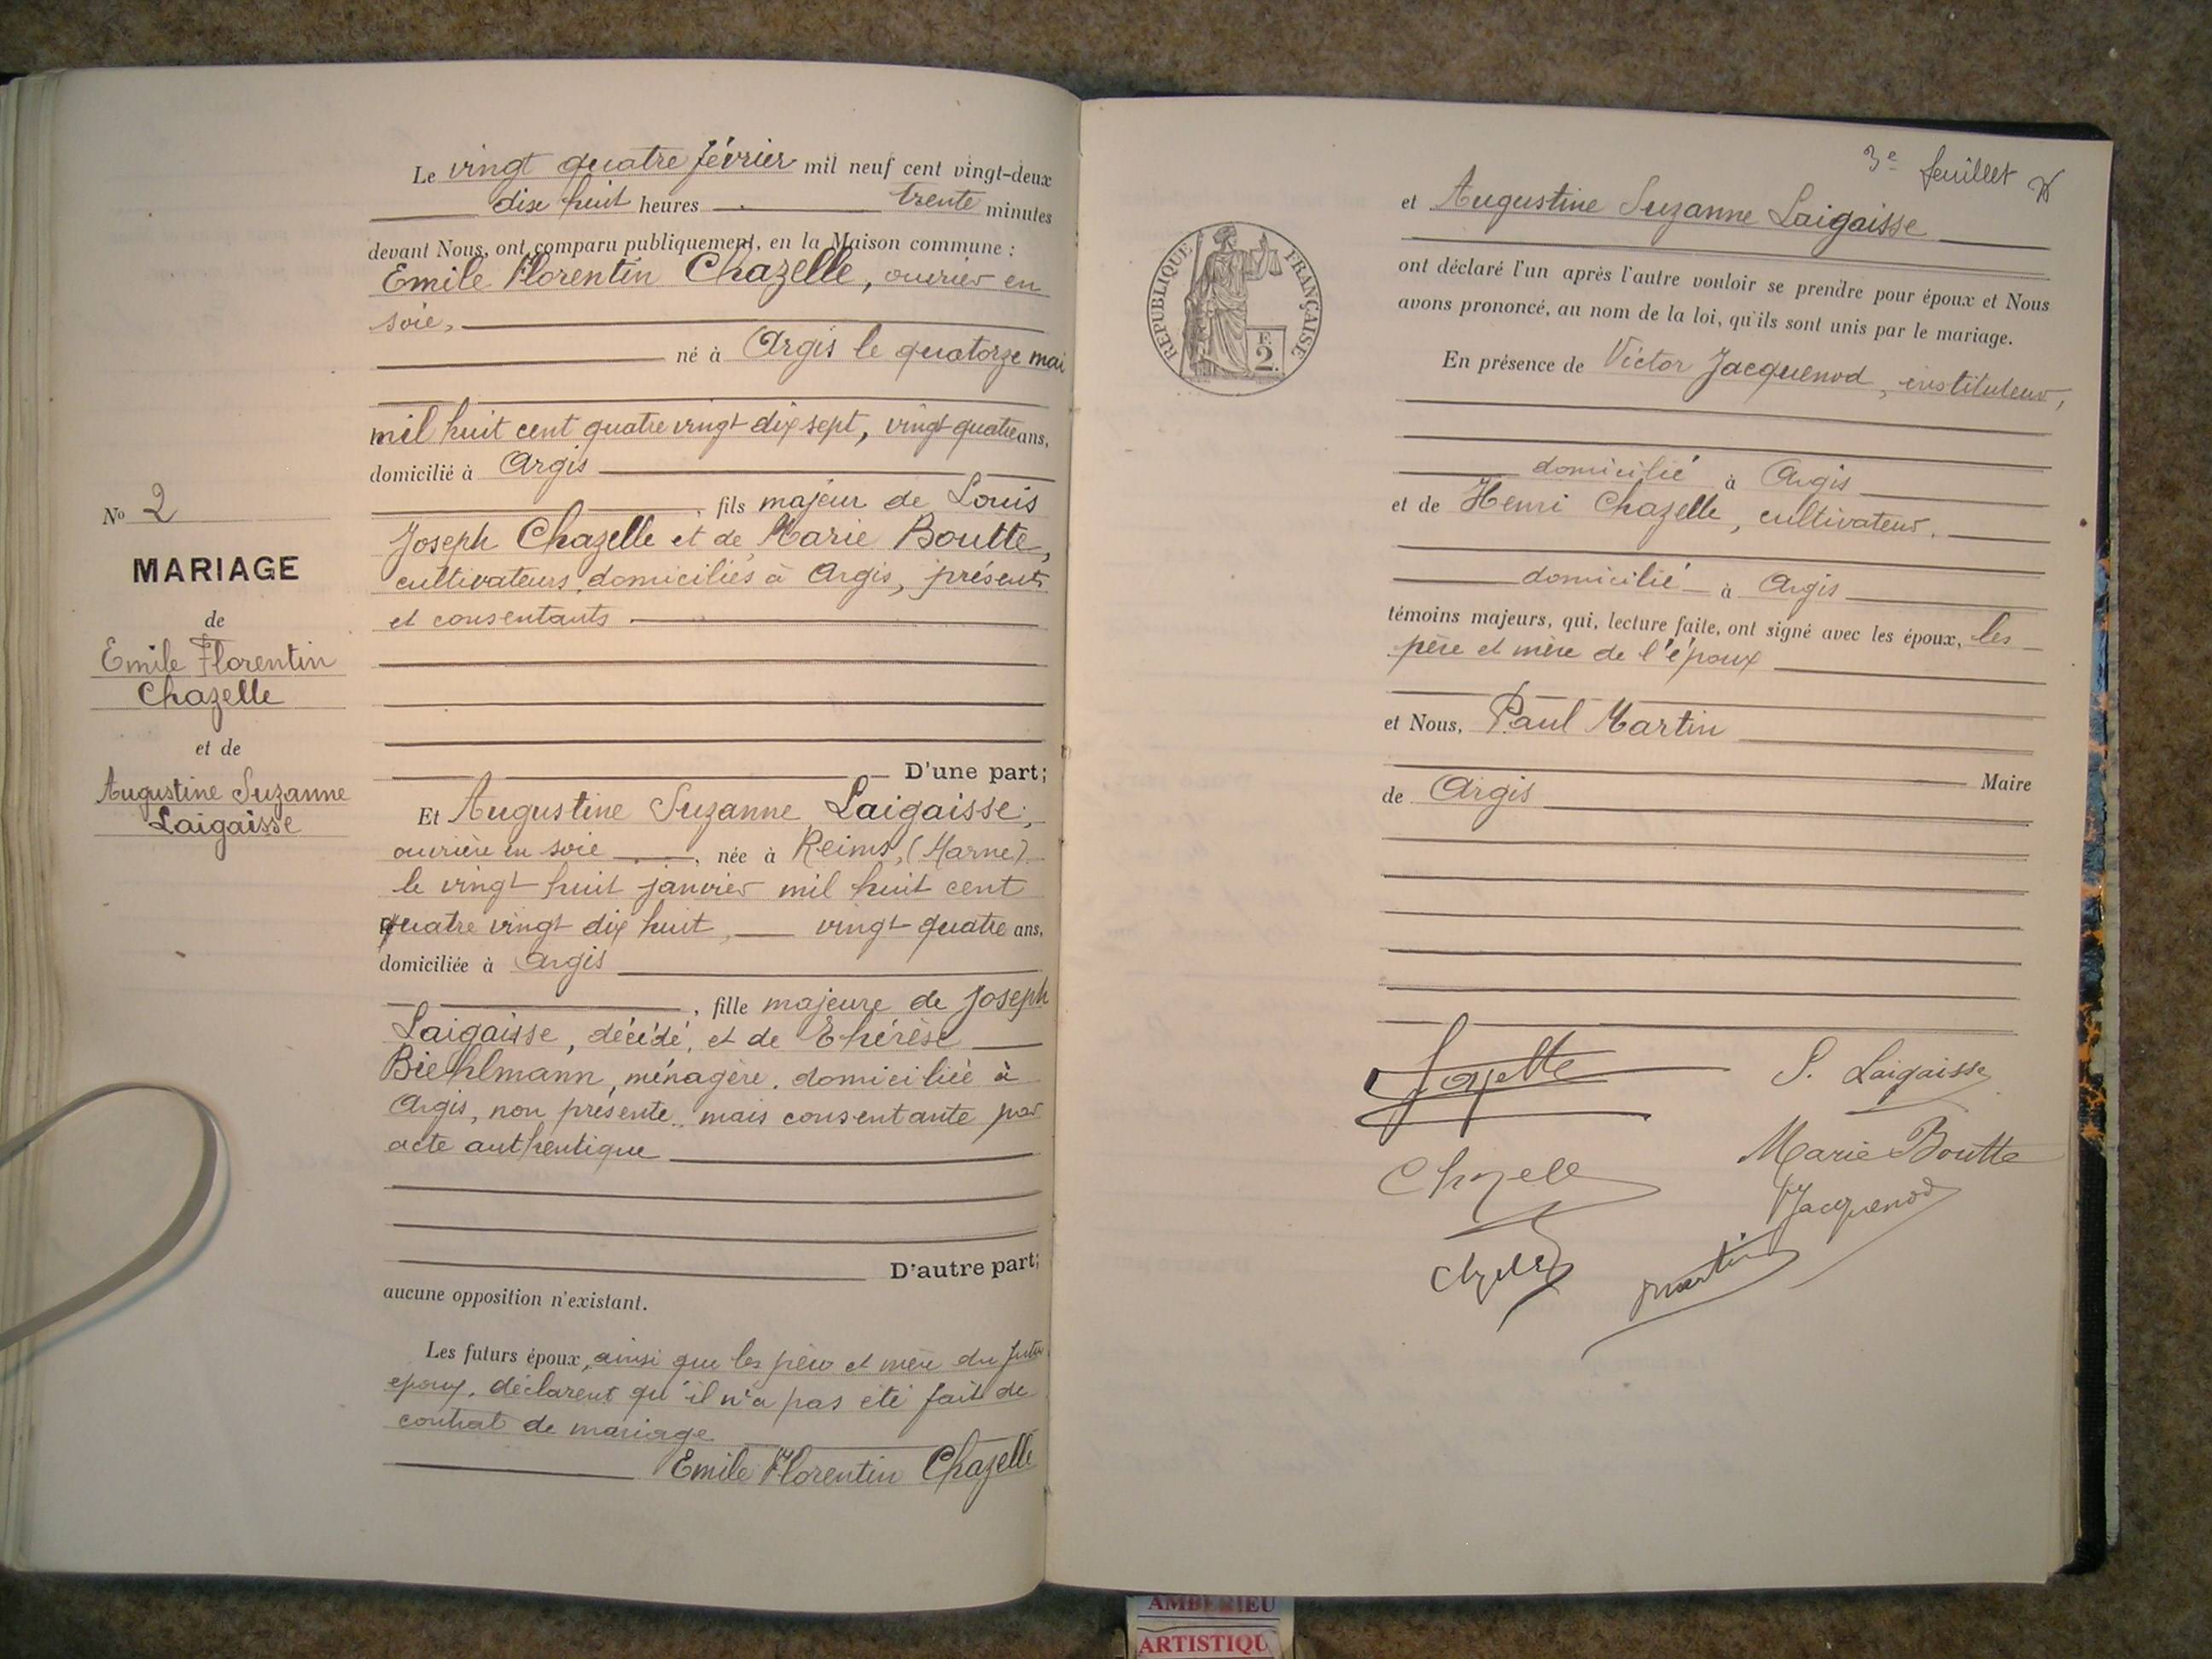 Le vingt quatre février mil neuf cent vingt-deux
dix huit heures trente minutes
devant Nous, ont comparu publiquement, en la Maison commune :
Emile Florentin Chazelle, ouvrier en
soie,
né à Argis le quatorze mai
mil huit cent quatre vingt dix sept, vingt quatre ans,
domicilié à Argis
, fils majeur de Louis
Joseph Chazelle et de Marie Boutte,
cultivateurs domiciliés à Argis, présents
et consentants
D'une part;
No 2
MARIAGE
de
Emile Florentin
Chazelle
et de
Augustine Suzanne
Laigaisse
Et Augustine Suzanne Laigaisse,
ouvrière en soie, née à Reims, (Marne)
le vingt huit janvier mil huit cent
quatre vingt dix huit, vingt quatre ans,
domiciliée à Argis
, fille majeure de Joseph
Laigaisse, décédé, et de Thérèse
Biehlmann, ménagère, domiciliée à
Argis, non présente mais consentante par
acte authentique
D'autre part;
aucune opposition n'existant.
Les futurs époux, ainsi que les père et mère du futur
époux, déclarent qu'il n'a pas été fait de
contrat de mariage
Emile Florentin Chazelle
3e feuillet
et Augustine Suzanne Laigaisse
ont déclaré l'un après l'autre vouloir se prendre pour époux et Nous
avons prononcé, au nom de la loi, qu'ils sont unis par le mariage.
REPUBLIQUE FRANÇAISE
F.
2.
En présence de Victor Jacquenod, instituteur,
domicilié à Argis
et de Henri Chazelle, cultivateur,
domicilié à Argis
témoins majeurs, qui, lecture faite, ont signé avec les époux, les
père et mère de l'époux
et Nous, Paul Martin
Maire
de Argis
S. Laigaisse
Marie Boutte
Jacquenod
Martin
AMBERIEU
ARTISTIQU